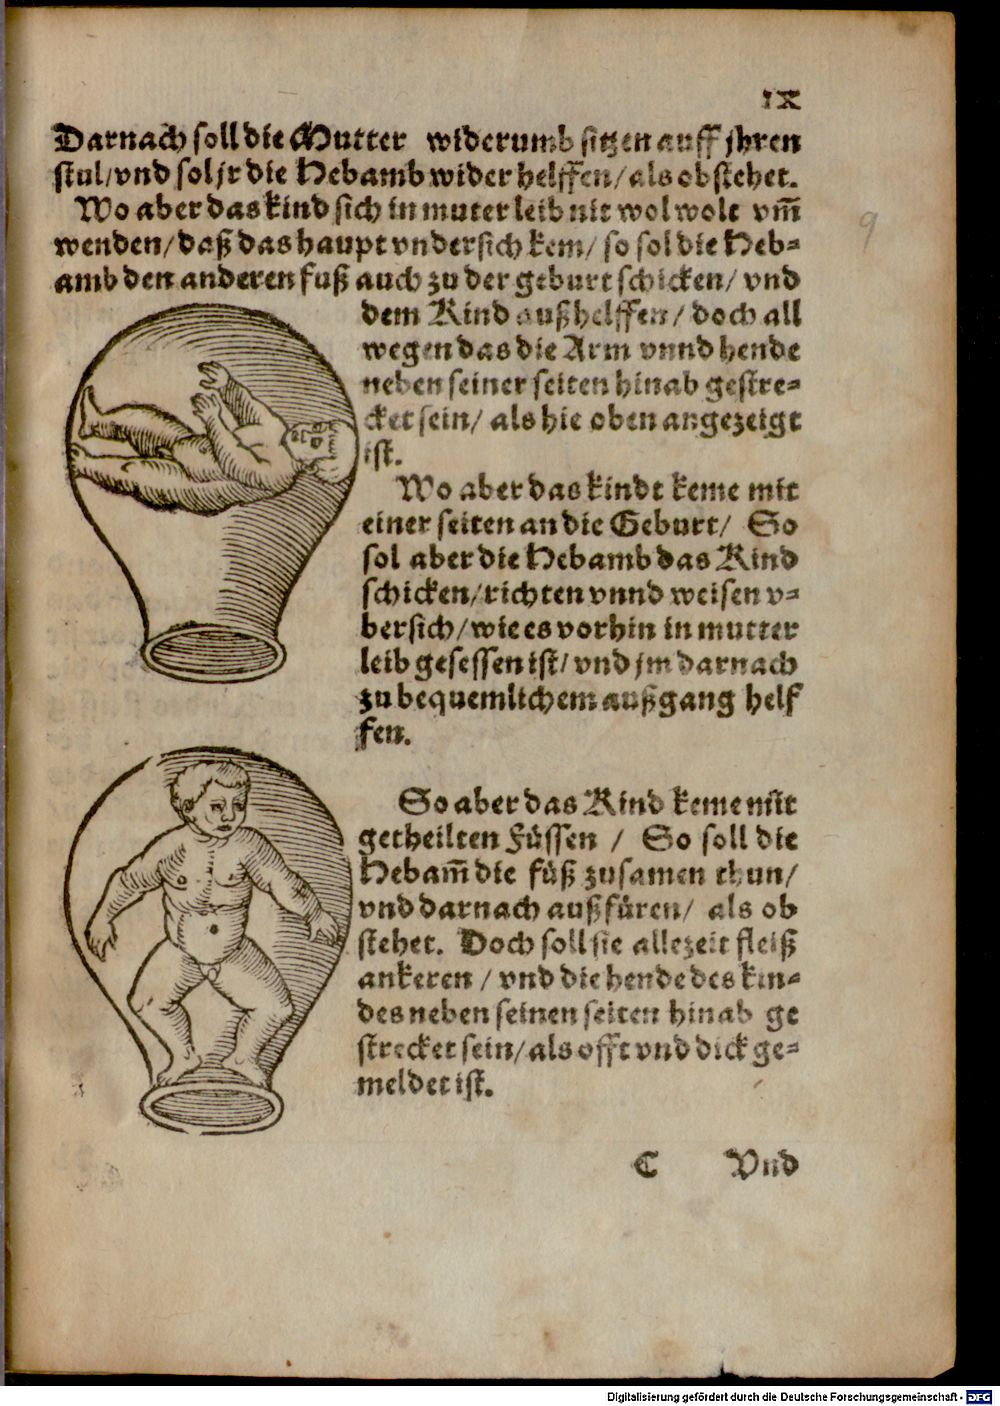 IX
Darnach soll die Mutter widerumb sitzen auff jhren
stul/vnd sol jr die Hebamb wider helffen/als obstehet.
Wo aber das kind sich in muter leib nit wol wolt vm̄
wenden/daß das haupt vndersich kem/so sol die Heb⸗
amb den anderen fuß auch zu der geburt schicken/vnd
dem Kind außhelffen/doch all
wegen das die Arm vnnd hende
neben seiner seiten hinab gestre⸗
cket sein/als hie oben angezeigt
ist.
Wo aber das kindt keme mit
einer seiten an die Geburt/ So
sol aber die Hebamb das Kind
schicken/richten vnnd weisen v⸗
bersich/wie es vorhin in mutter
leib gesessen ist/vnd jm darnach
zu bequemlichem außgang helf
fen.
So aber das Kind keme mit
getheilten Füssen / So soll die
Hebam̄ die füß zusamen thun/
vnd darnach außfüren/ als ob
stehet. Doch soll sie allezeit fleiß
ankeren / vnd die hende des kin⸗
des neben seinen seiten hinab ge
strecket sein/als offt vnd dick ge⸗
meldet ist.
C Vnd
9
Digitalisierung gefördert durch die Deutsche Forschungsgemeinschaft - DFG